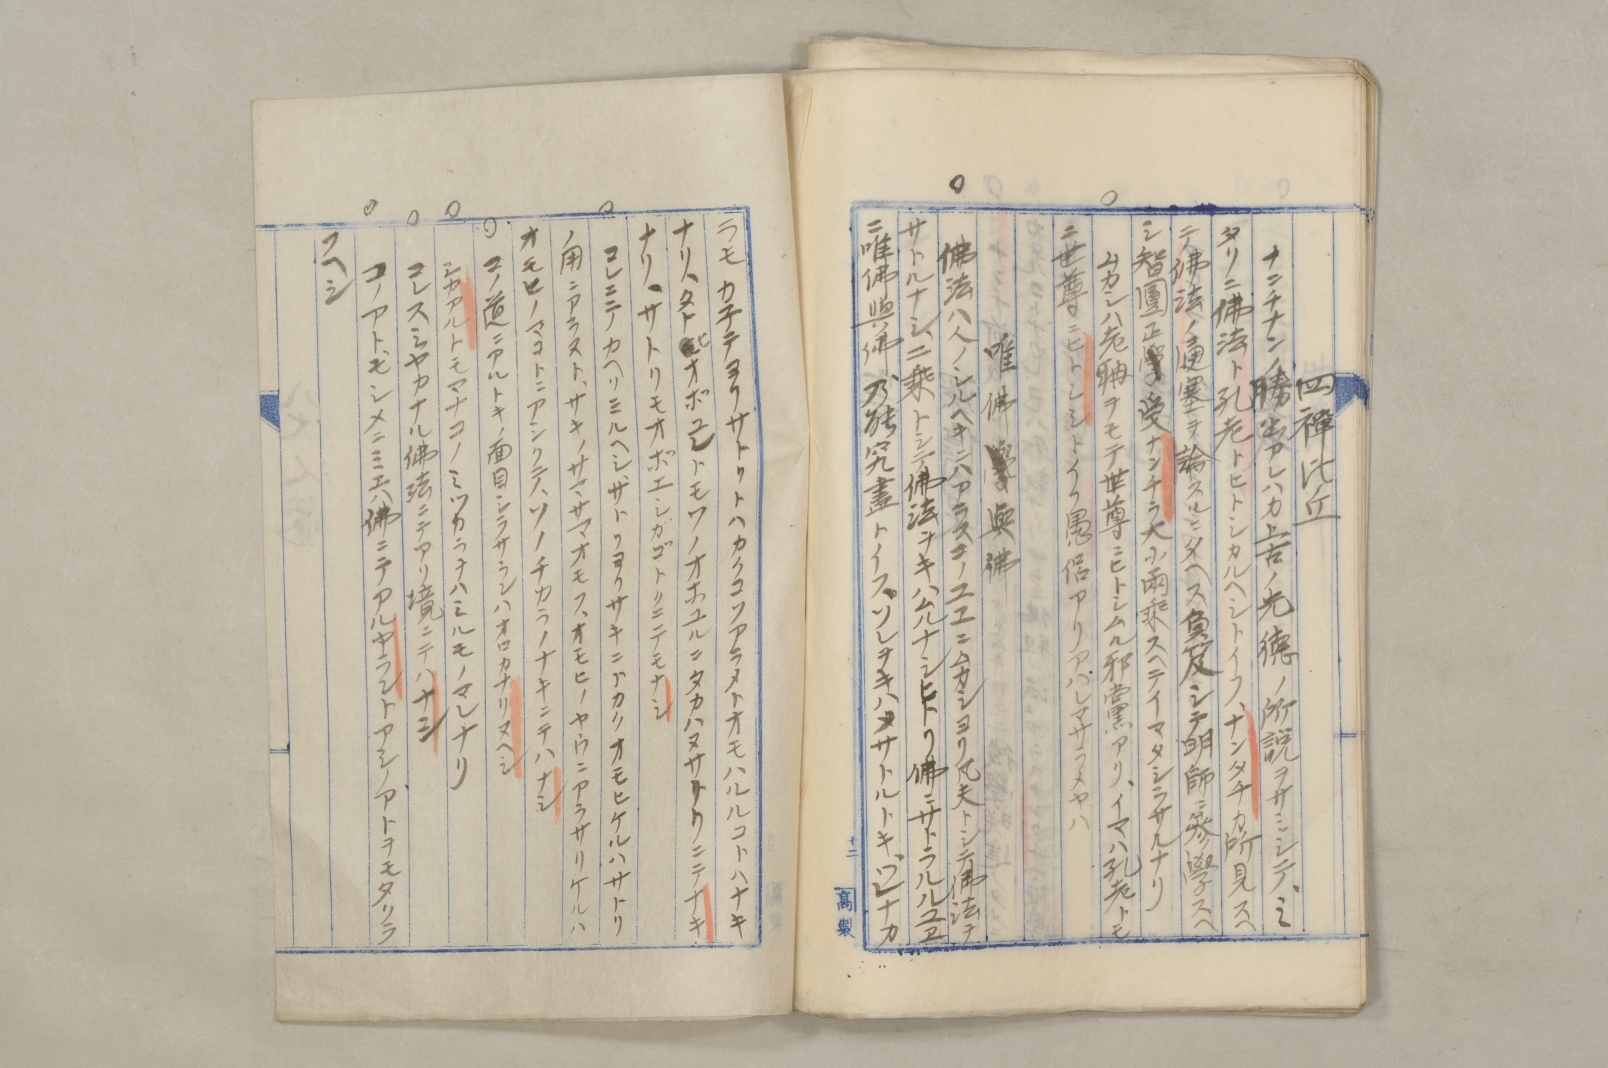 四禪比丘
ナンチナンノ勝出アレハカ上古ノ先德ノ所説ヲサミシテ、ミ
タリニ佛法ト孔老トヒトシカルヘシトイフ、ナンタチカ所見スヘ
テ佛法ノ通塞ヲ論スルニタヘス負笈シテ明師ニ參學スヘ
シ智圓正受ナンチラ大小兩乘スヘテイマタシラサルナリ
ムカシハ老聃ヲモテ世尊ニヒトシムル邪黨アリ、イマハ孔老トモ
ニ世尊ニヒトシトイフ愚侶アリアハレマサラメヤハ
唯佛與佛
佛法ハ人ノシルヘキニハアラスコノユエニムカシヨリ凡夫トシテ佛法ヲ
サトルナシ、二乘トシテ佛法ヲキハムルナシヒトリ佛ニサトラルルユヱ
ニ唯佛與佛、乃能究盡トイフ、ソレヲキハメサトルトキ、ワレナカ
ラモ カネテヨリサトルトハカクコソアラメトオモハルルコトハナキ
ナリ、タトヒオボユレトモソノオホユルニタカハヌサトリニテナキ
ナリ、サトリモオボエシカゴトクニテモナシ
コレニテカヘリミルヘシサトリヨリサキニトカクオモヒケルハサトリ
ノ用ニアラスト、サキノサマサマオモフ、オモヒノヤウニアラサリケルハ
オモヒノマコトニアシクテ、ソノチカラノナキニテハナシ
コノ道ニアルトキノ面目シラサランハオロカナリヌヘシ
シカアルトモマナコノミツカラヲハミルモノマレナリ
コレスミヤカナル佛法ニテアリ境ニテハナシ
コノアトモシメニミエハ佛ニテアルヤラントアシノアトヲモタクラ
フヘシ
十二
高製